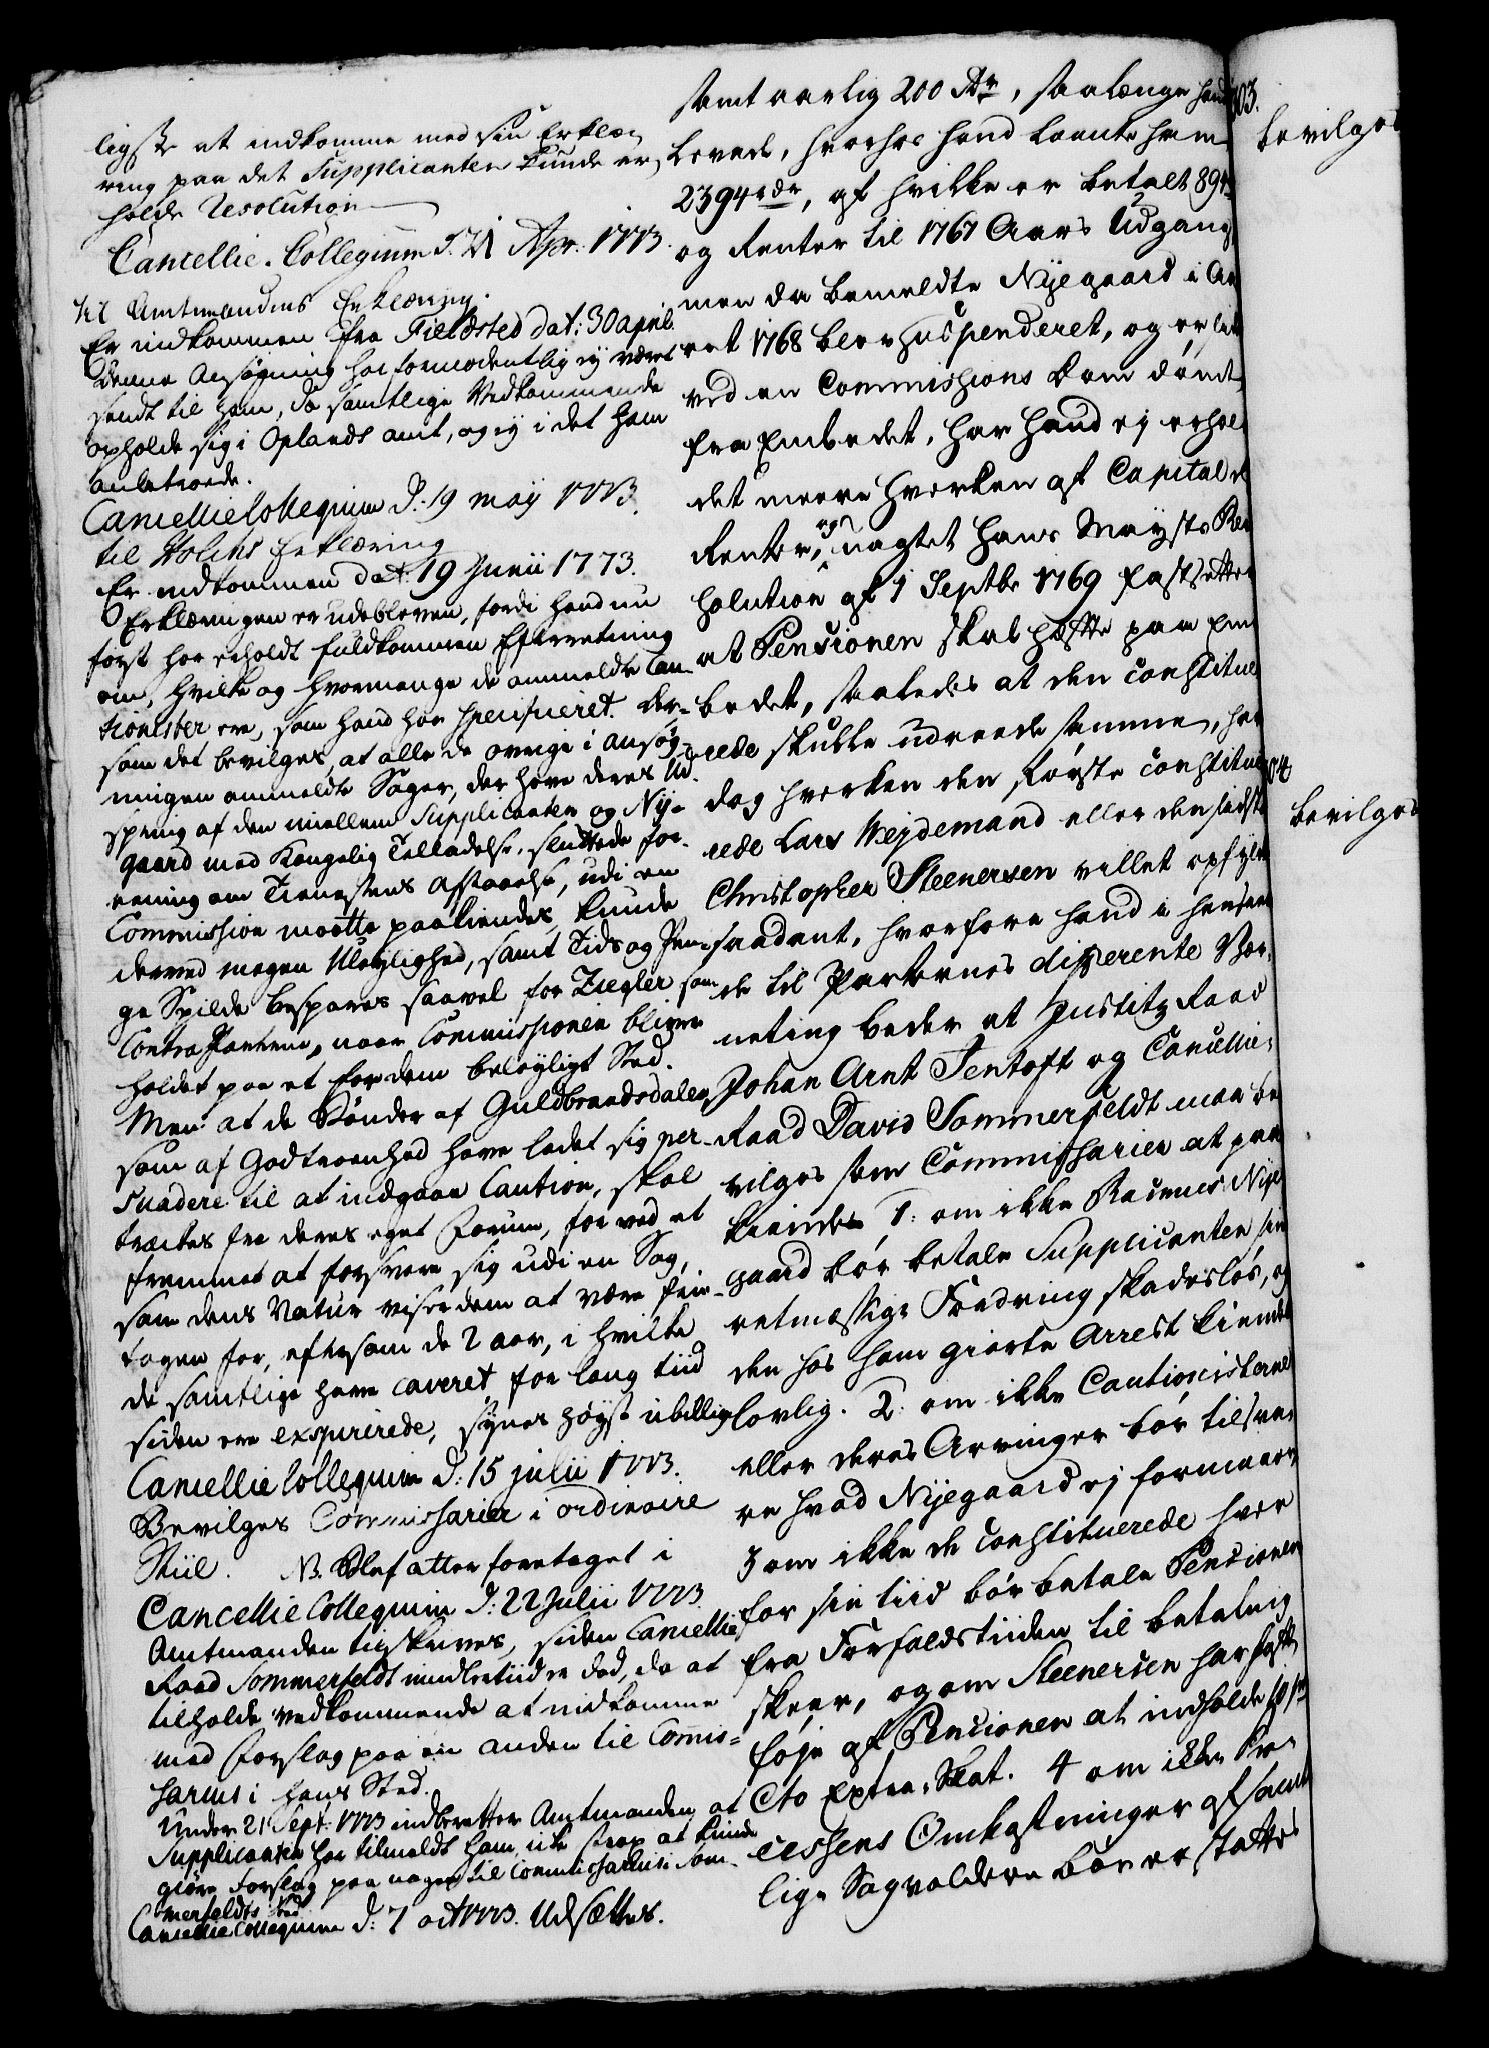 ligste at indkomme med sin Erklæ-
ring paa det Supplicanten kunde er-
holde Resolution
Cancellie-Collegium d. 21 Apr: 1773.
til Amtmandens Erklæring.
Er indkommen fra Fieldsted dat: 30 april
Denne Ansøgning har formodentlig ej været
sendt til ham, da samtlige Vedkommende
opholde sig i Oplands amt, og ej i det ham
anbetroede.
Cancellie Collegium d: 19 maij 1773.
til Holms Erklæring
Er indkommen dat: 19 Junii 1773.
Erklæringen er udebleven, fordi hand nu
først har erholdt fuldkommen Efterretning
om, hvilke og hvormange de anmeldte Cau-
tionister ere, som hand har specificeret. Der-
som det bevilges, at alle de øvrige i ansøg-
ningen anmeldte Sager, der have deres Ud-
spring af den imellem Supplicanten og Nije-
gaard med Kongelig Tilladelse, sluttede for-
eening om Tienestens afstaaelse, udi en
Commission maatte paakiendes, kunde
derved megen Uleylighed, samt Tids og Pen-
ge Spilde bespares saavel for Ziegler som
Contra Parterne, naar Commissionen bliver
holdet paa et for dem beleyligt Sted.
Men at de Bønder af Guldbrandsdalen
som af Godtroenhed have ladet sig per-
suadere til at indgaae Caution, skal
trækkes fra deres eget Forum, for ved et
fremmet at forsvare sig udi en Sag,
som dens Natur viser dem at være frie-
tagen for, eftersom de 2 aar, i hvilke
de samtlige have caveret for lang tiid
siden ere exspirerede, synes høyst ubillig
Cancellie Collegium d: 15 julii 1773.
Bevilges Commissarier i ordinaire
Stiil. NB. Blef atter foretaget i
Cancellie Collegium d: 22 Julii 1773
Amtmanden tilskrives, siden Cancellie
Raad Sommerfeldt imidlertiid er død, da at
tilholde vedkommende at indkomme
med forslag paa en anden til Commis-
sarius i hans Sted.
Under 21 Sept: 1773 indberetter Amtmanden, at
Supplicanten har tilmeldt ham, ikke strax at kunde
giøre forslag paa nogen til Commissarius i Som-
merfeldts Sted.
Cancellie Collegium d: 7 oct 1773. Udsættes.
samt aarlig 200 Rdr, saalænge hand
levede, hvorhos hand laante ham
2394 rdr, af hvilke er betalt 894
og Renter til 1767 Aars Udgang
men da bemeldte Nijegaard i Aa-
ret 1768 blev suspenderet, og er siden
ved en Commissions Dom dømt
fra Embedet, har hand ej erhol-
det meere hverken af Capital e
Renter, uagtet Hans Maysts Re-
solution af 1 Septbr 1769 fastsetter
at Pensionen skal hæfte paa Em-
bedet, saaledes at den constitue-
rede skulle udreede samme, har
dog hverken den første constitue-
rede Lars Weydemand eller den sidste
Christopher Steenersen villet opfylde
saadant, hvorfore hand i henseen-
de til Parternes differente Vær-
neting beder at Justitz Raad
Johan Arnt Tentoft og Cancellie-
Raad David Sommerfeldt maa be-
vilges som Commissarier at paa-
kiende 1: om ikke Rasmus Nije-
gaard bør betale Supplicanten sin
retmæssige Fordring skadesløs, og
den hos ham giorte Arrest kiendes
lovlig. 2: om ikke Cautionisterne
eller deres Arvinger bør tilsva-
re hvad Nijegaard ej formaaer
3 om ikke de constituerede hver
for sin tiid bør betale Pensionen
fra Forfaldstiiden til betaling
skeer, og om Steenersen har haft
føje af Pensionen at indholde 10 pr
Cto Extra-Skat. 4 om ikke Pro-
cessens Omkostninger af samt-
lige Sagvoldere bør erstattes
03.
bevilges
04
bevilges